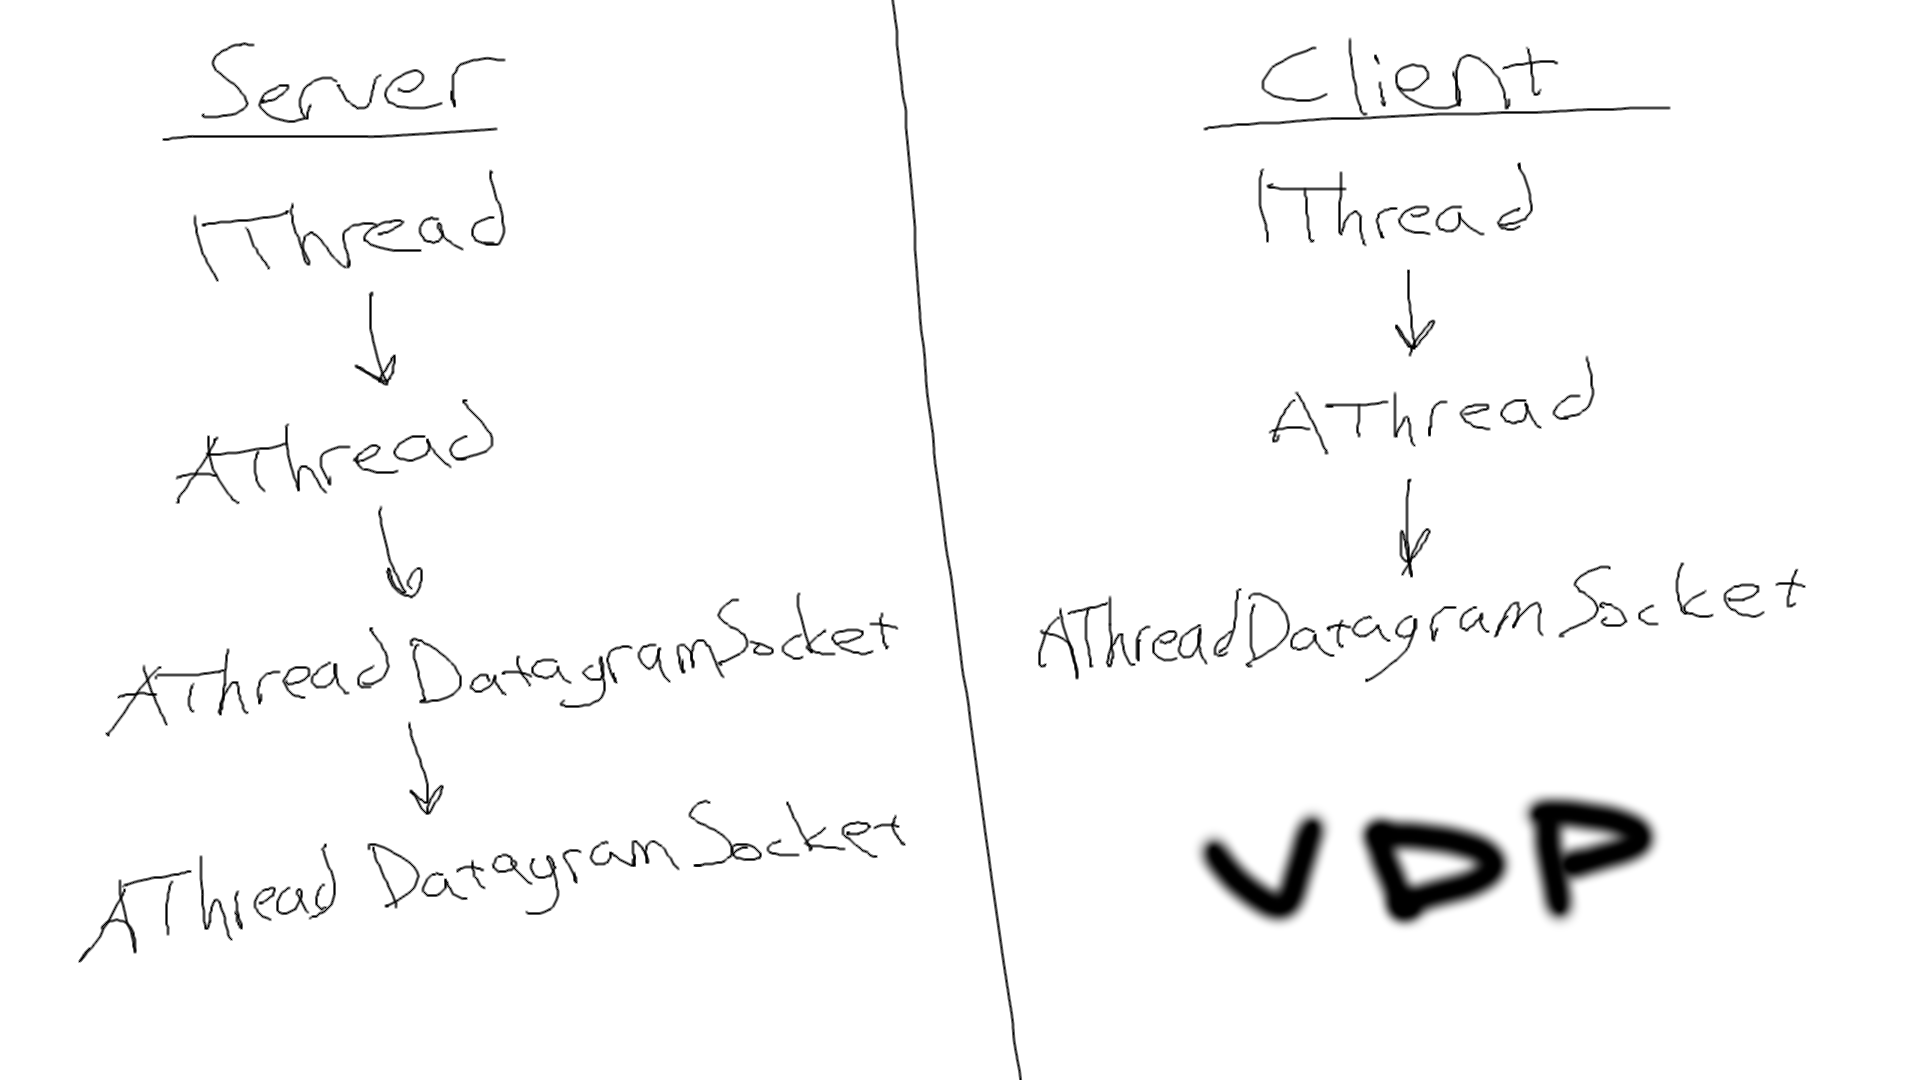 Server
IThread
AThread
AThreadDatagramSocket
AThread DatagramSocket
Client
IThread
AThread
AThreadDatagramSocket
VDP